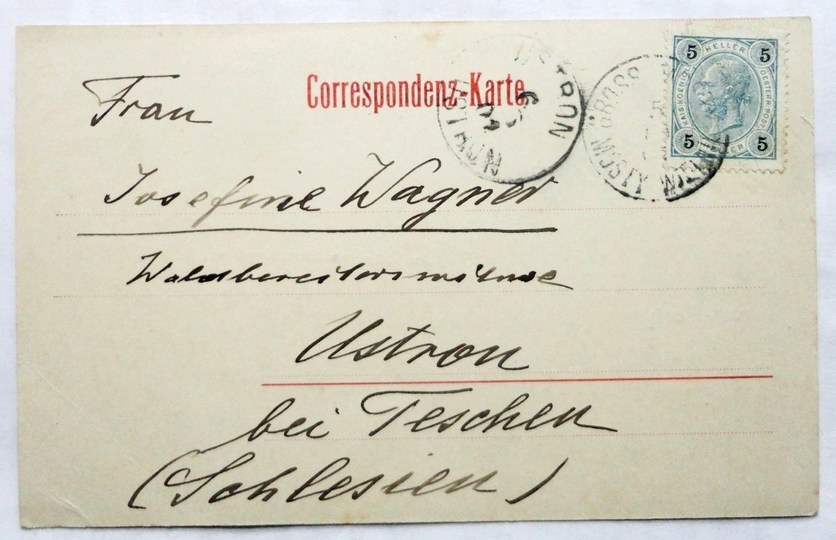 Correspondenz-Karte
USTRON
USTRON
5 HELLER 5
KAIS.KOENIGL. OESTERR.POST
5 HELLER 5
GROSS
WYSOKY
Frau
Josefine Wagner
Ustron
bei Teschen
(Schlesien)